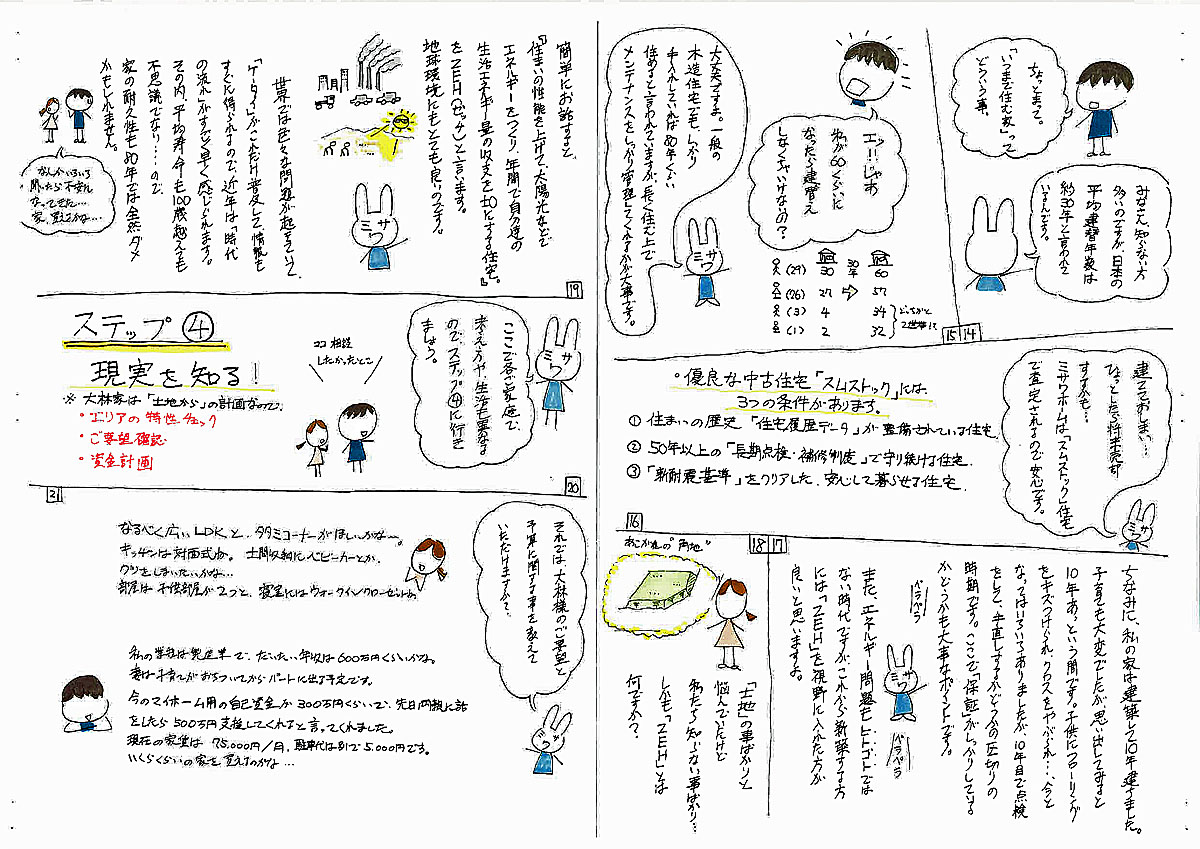 ちょとまって。
「いつまで住む家」って
どういう事。
みなさん知らない方
多いのですが、日本の
平均建替年数は
約30年と言のんて
いるんです。
エッ…!じゃあ
私が60くらいに
なったら建替え
しなくちゃいけないの?
(29) 30 30年 60
(26) 27 ⇨ 57
(3) 4 34
(1) 2 32
どっちかと
2世帯に
大丈夫ですよ。一般の
木造住宅でも、しっかり
手入れしていれば80年くらい
住めると言われていますが、長く住む上で
メンテナンスをしっかり管理してくれるかが大事です。
ミサワ
15 14
建てておしまい…
ひょっとしたら将来売却
するかも…
ミサワホームは「スムストック」住宅
で査定されるので安心です。
ミサワ
・優良な中古住宅「スムストック」には
3つの条件があります。
① 住まいの歴史 「住宅履歴データ」が整備されている住宅
② 50年以上の「長期点検・補修制度」で守り続ける住宅.
③ 「新耐震基準」をクリアした、安心して暮らせる住宅.
16
18 17
ちなみに、私の家は建築して10年建ちました。
子育ても大変でしたが、思い出してみると
10年あっという間です。子供にフローリング
をキズつけられ、クロスをやぶられ…、今と
なってはいろいろありましたが、10年目で点検
をして、手直しするかどうかの区切りの
時期です。ここで「保証」がしっかりしている
かどうかも大事なポイントです。
ペラペラ
ミサワ
ペラペラ
また、エネルギー問題もヒトゴトでは
ない時代ですが、これから新築する方
には「ZEH」を視野に入れた方が
良いと思いますよ。
あこがれの“角地”
「土地」の事ばかりと
悩んでいたけど
私たち知らない事ばかり…
しかも「ZEH」とは
何ですか?
簡単にお話すると、
『住まいの性能を上げて、太陽光などで
エネルギーをつくり、年間で自分達の
生活エネルギー量の収支を±0にする住宅。』
をZEH(ゼッチ)と言います。
地球環境にもとても良いのです。
ミサワ
世界では色々な問題が起きていて、
「ケータイ」がこれだけ普及して、情報も
すぐに得られるので、近年は「時代
の流れ」がすごく早く感じられます。
その内、平均寿命も100歳越えても
不思議でない…ので
家の耐久性も80年では全然ダメ
かもしれません。
なんかいろいろ
聞いたら不安に
なってきた…
家、買えるかな…
19
ミサワ
ここで各ご家庭で、
考え方や生活も異なる
ので、ステップ④に行き
ましょう。
ココ相談
したかったとこ
ステップ ④
現実を知る!
※ 大林家は「土地から」の計画なので、
・エリアの特性チェック
・ご要望確認
・資金計画
21
20
それでは、大林様のご要望と
予算に関する事を教えて
いただけますか?
ミサワ
なるべく広いLDKと、タタミコーナーがほしいかな~。
キッチンは対面式かな。土間収納にベビーカーとか、
クツをしまいたいかな…
部屋は子供部屋が2つと、寝室にはウォークインクローゼットかな。
私の会社は製造業で、だいたい年収は600万円くらいかな。
妻は子育てがおちついてからパートに出る予定です。
今のマイホーム用の自己資金が300万円くらいで、先日両親に話
をしたら500万円支援してくれると言ってくれました。
現在の家賃は75,000円/月、駐車代は別で5,000円です。
いくらくらいの家を買えるのかな…